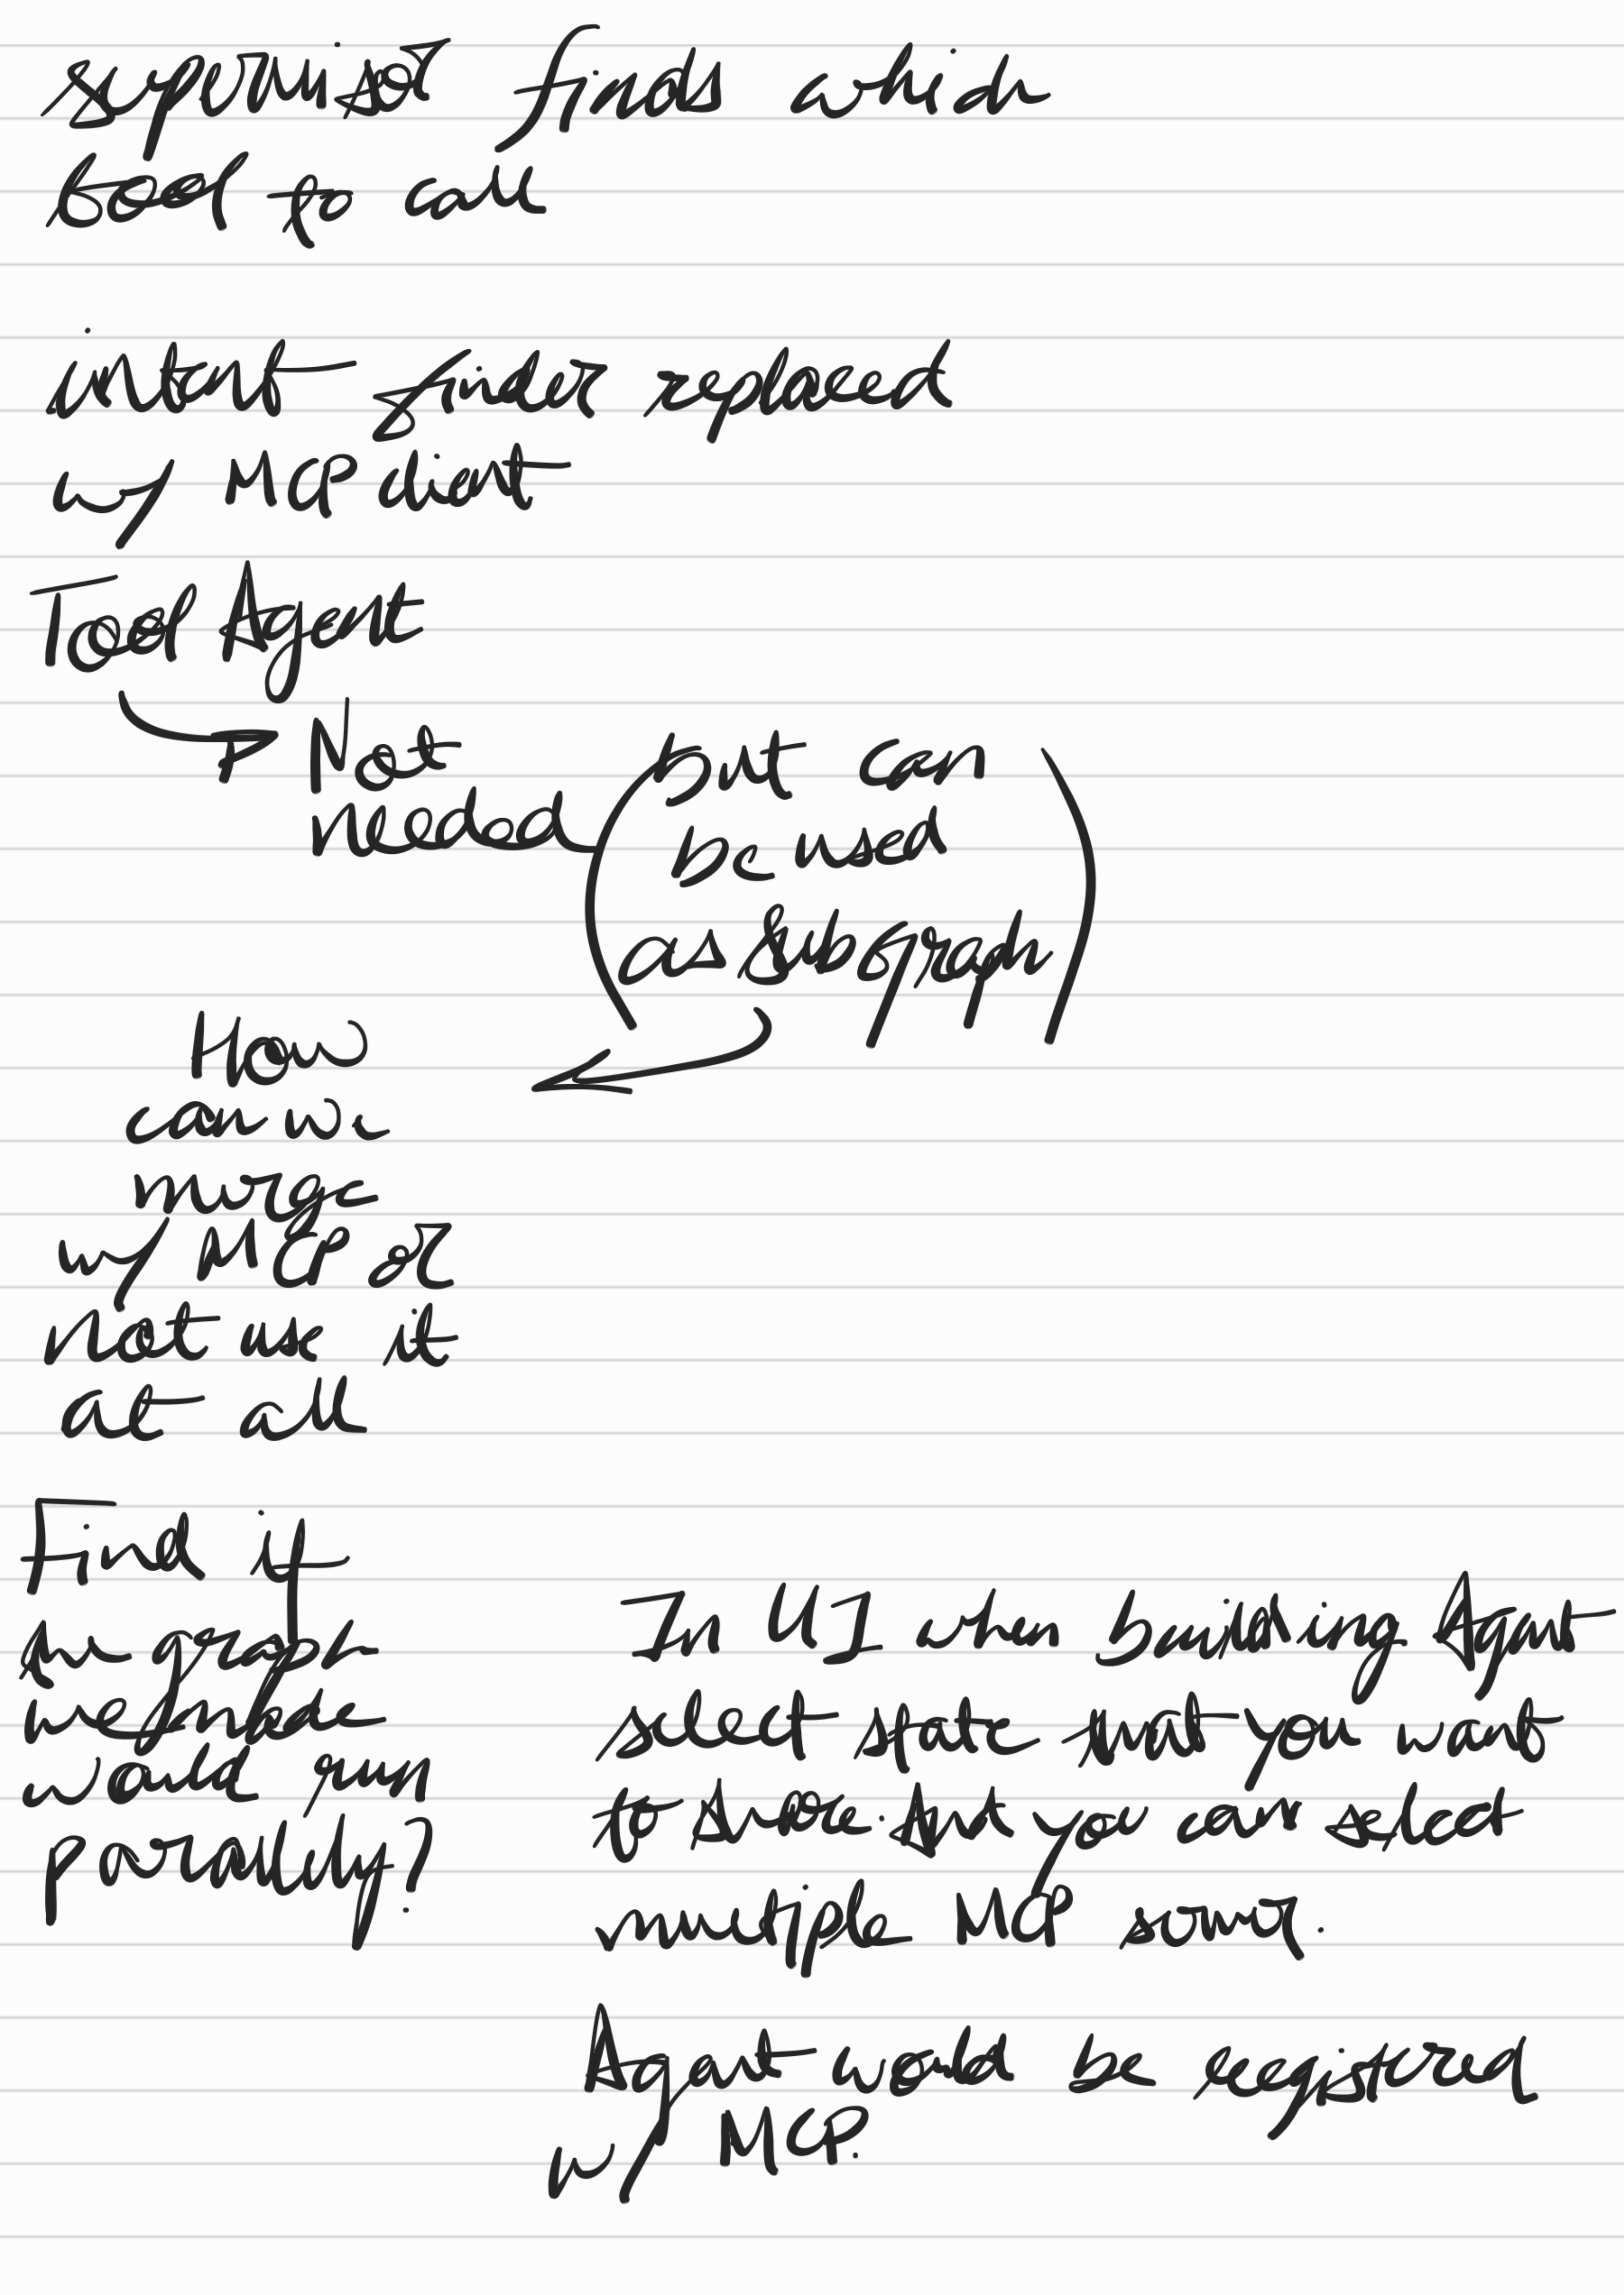 supervisor finds which
tool to call
intent finder replaced
w/ MCP client
Tool Agent
Not
needed
(but can
be used
as subgraph)
How
can we
merge
w/ MCP or
not use it
at all
Find if
we
would run
parallely?
In UI when building Agent
select state that you want
to share. that you can select
multiple MCP server.
Agent would be registered
w/ MCP.